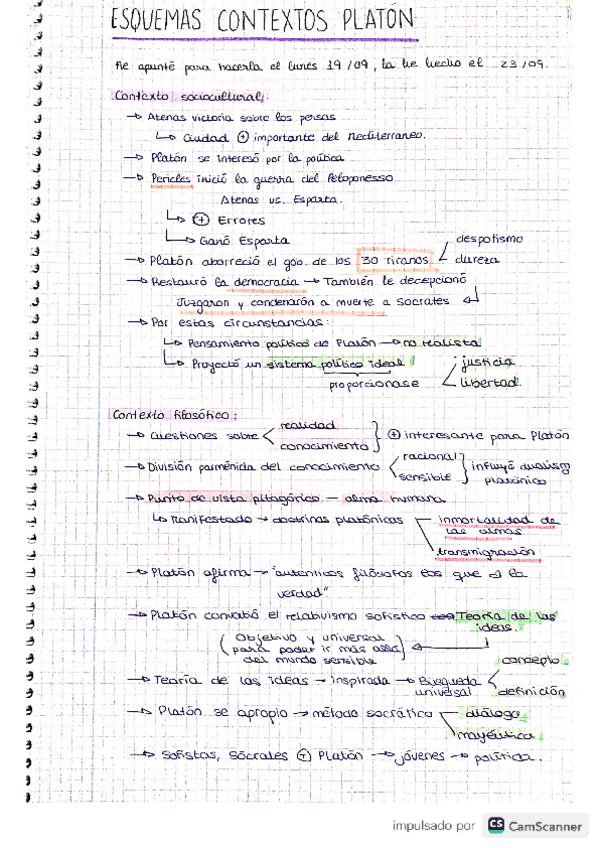 ESQUEMAS CONTEXTOS PLATÓN
Me apunté para hacerla el lunes 19/09, la he hecho el 23/09.
Contexto sociocultural:
→ Atenas victoria sobre los persas
↳ Ciudad ⊕ importante del Mediterraneo.
→ Platón se interesó por la política
→ Pericles inició la guerra del Peloponesso
Atenas vs. Esparta.
↳ ⊕ Errores
↳ Ganó Esparta
→ Platón aborreció el gno. de los 30 Tiranos despotismo
dureza
→ Restauró la democracia → También le decepcionó
Juzgaron y condenarón a muerte a Sócrates
→ Por estas circunstancias:
↳ Pensamiento político de Platón → no realista
↳ Proyectó un sistema político ideal justicia
proporcionase libertad.
Contexto filosófico:
→ Cuestiones sobre realidad
conocimiento ⊕ interesante para Platón
→ División parménida del conocimiento racional
sensible influyó dualismo
platónico
→ Punto de vista pitagórico — alma humana
↳ Manifestado → doctrinas platónicas inmortalidad de
las almas
transmigración
→ Platón afirma → "autenticos filósofos los que a la
verdad".
→ Platón convatió el relativismo sofístico Teoría de las
ideas.
(Objetivo y universal
para poder ir más allá
del mundo sensible)
→ Teoría de las ideas → inspirada → Búsqueda
universal
concepto
definición
→ Platón se apropio → método socrático diálogo
mayéutica
→ Sofistas, Sócrates ⊕ Platón → jóvenes → política.
impulsado por CS CamScanner